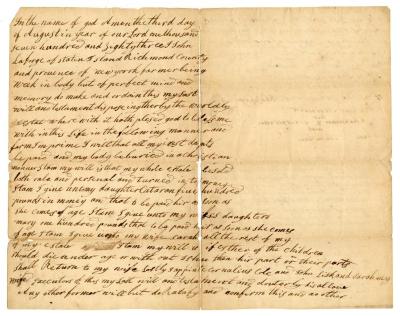 In the name of god Amon the third day
of August in year of our Lord one thousand
seven hundred and Eighty three I John
Laforge of staten Island Richmond County
and provence of new york farmer being
weak in body but of perfect mind and
memory do make and ordan this my Last
will and testament disposeing therby the worldly
estate where with it hath plesed god to bless me
with in this Life in the following manner and
form Imprime I will that all my Just depts
be paid and my body be buried in a christian
manner Itam my will is that my whole estate be sold
both rale and personal and turned in to money
Itam I give unto my daughter Cataron five hundred
pounds in money on that to be paid her as soon as
she comes of age Itam I give unto my daughter
mary one hundred pounds that to be paid as soon as she comes
of age Itam I give unto my wife sarah all the rest of my
of my estate Itam my will is if Esther of the children
should die under age or with out Isshue than his part or their part
shall Return to my wife Lastly I appoint Cornalius Cole and John and Sarah my
wife Executors of this my Last will and testament and do alow
any other former will but do Ratafy and confirm this and no other